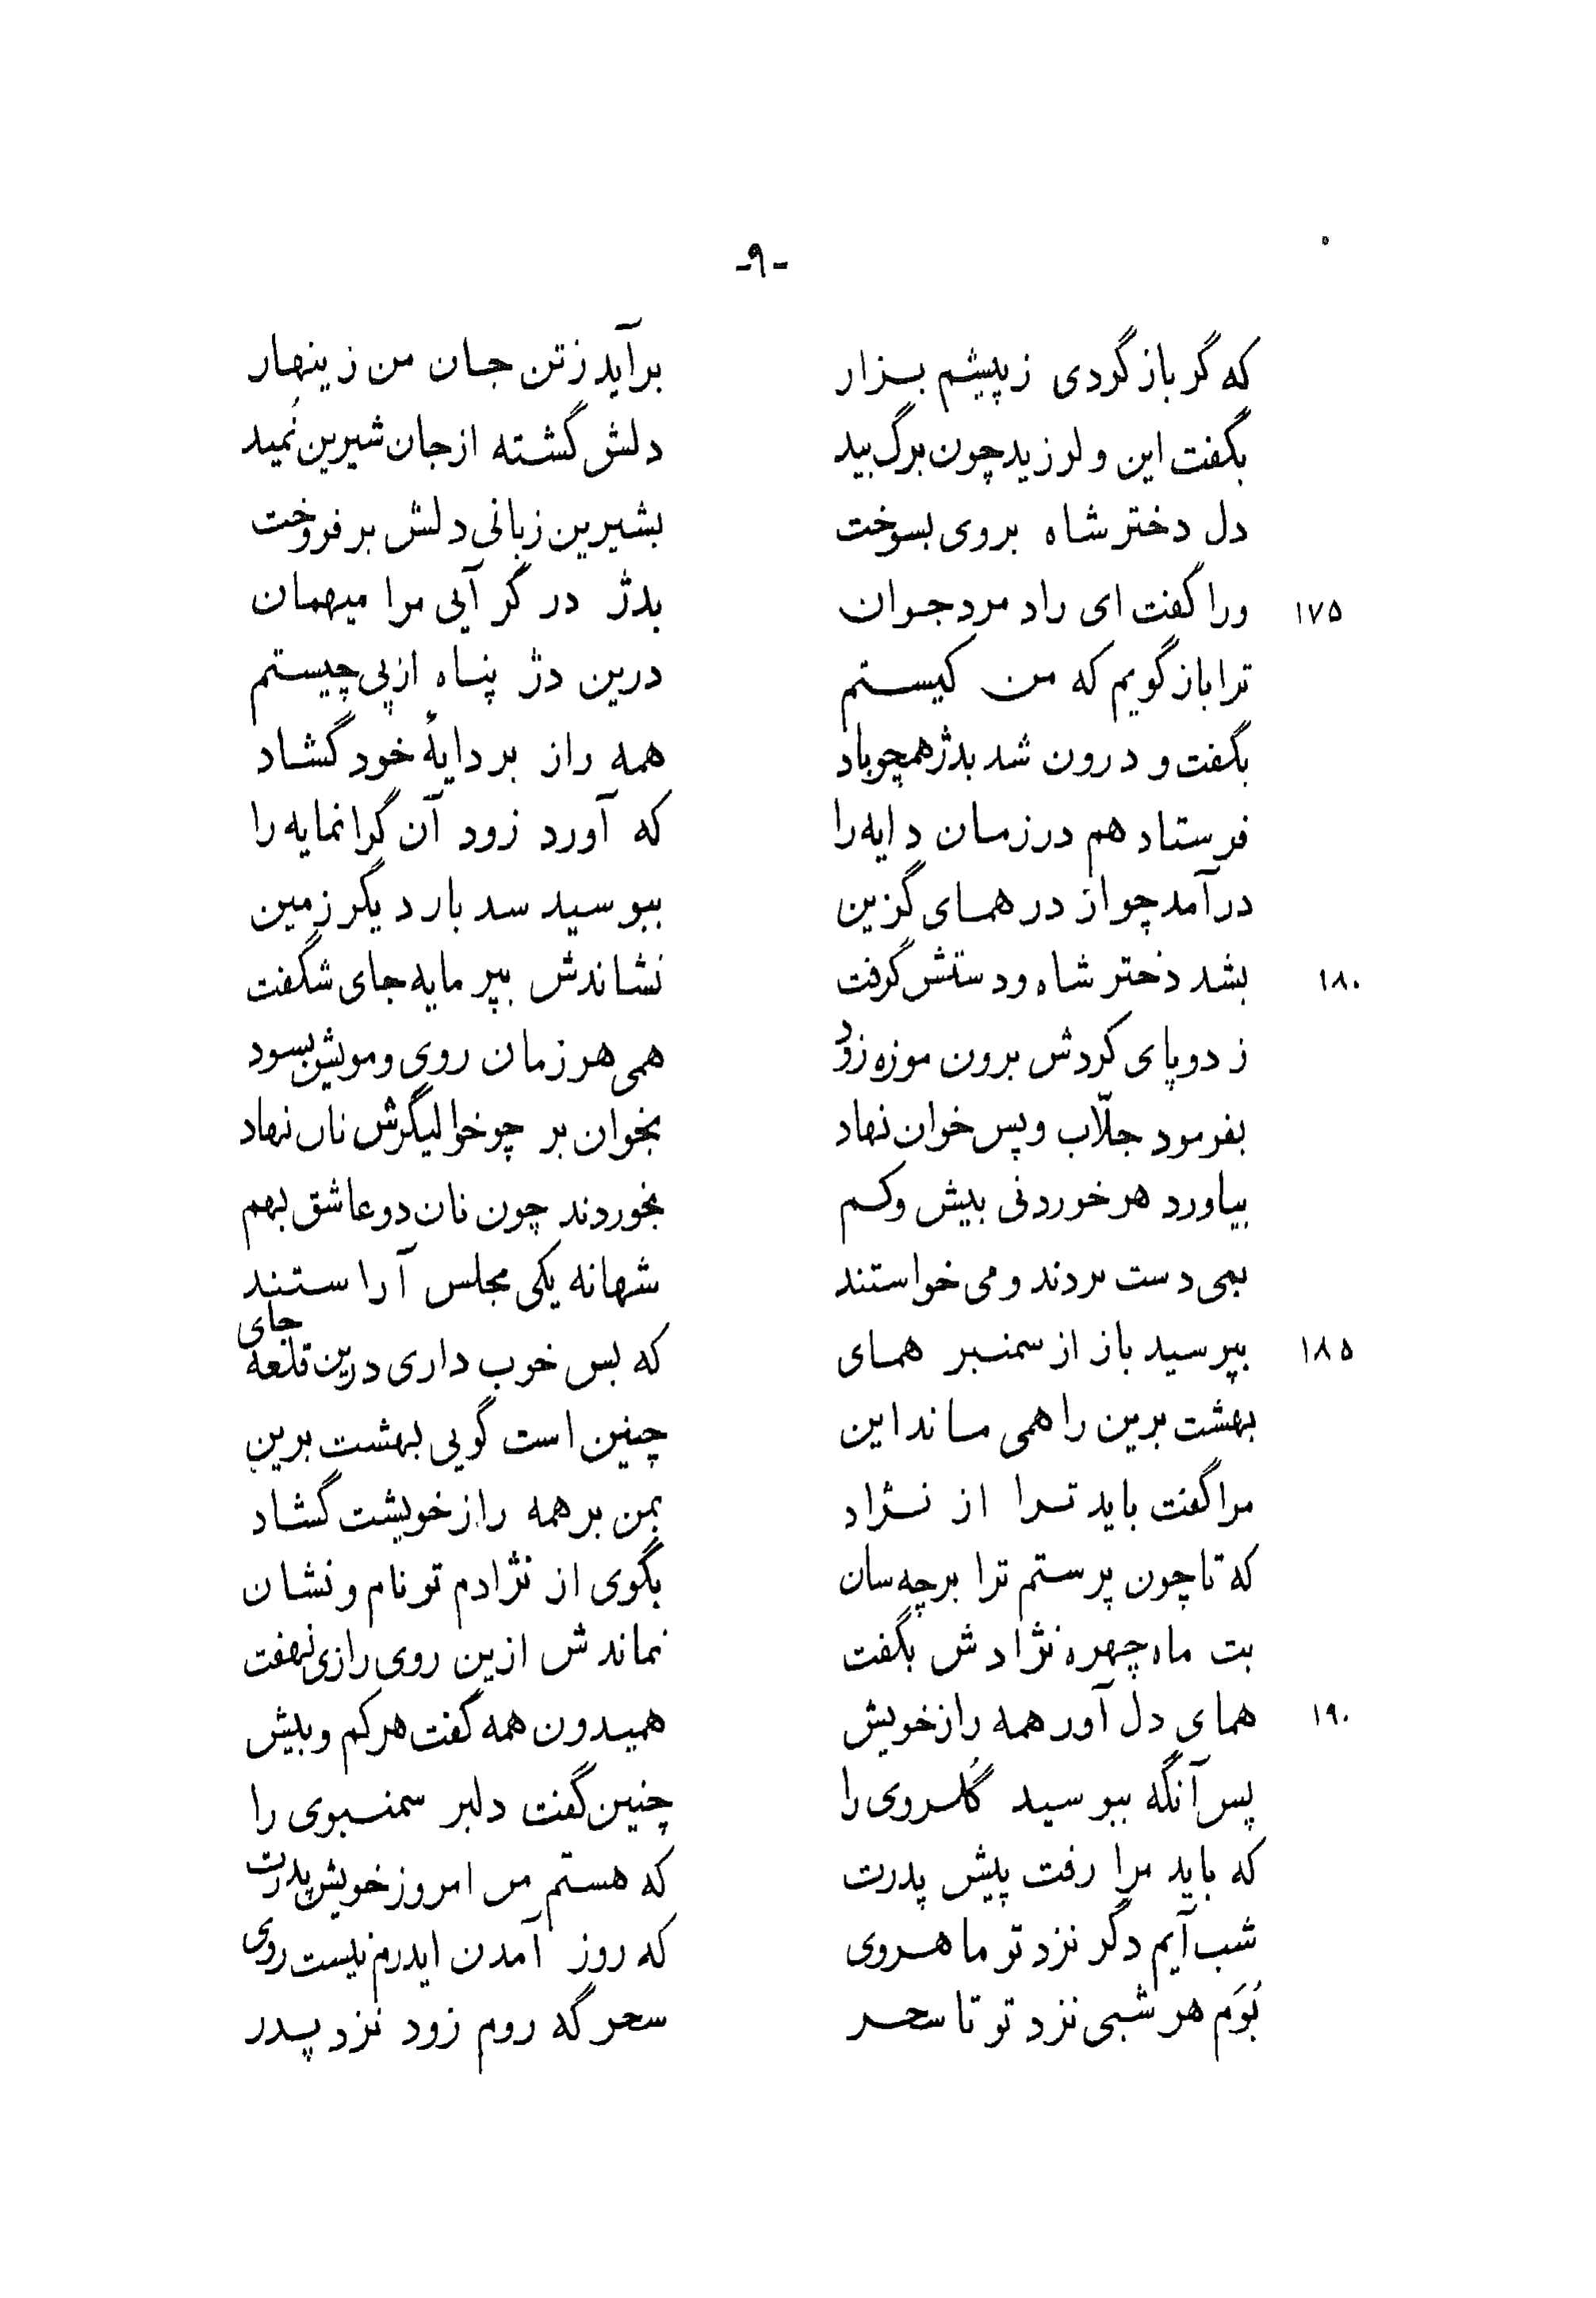 -۹-
که گر باز گردی ز پیشم بزار برآید ز تن جان من زینهار
بگفت این و لرزید چون برگ بید دلش گشته از جان شیرین نُمید
دل دختر شاه بروی بسوخت بشیرین زبانی دلش بر فروخت
۱۷۵ ورا گفت ای راد مرد جوان بدژ در گر آیی مرا میهمان
ترا باز گویم که من کیستم درین دژ پناه از پی چیستم
بگفت و درون شد بدژ همچو باد همه راز بر دایهٔ خود گشاد
فرستاد هم در زمان دایه را که آورد زود آن گرانمایه را
در آمد چو از در همای گزین ببوسید سد بار دیگر زمین
۱۸۰ بشد دختر شاه و دستش گرفت نشاندش بپر مایه جای شگفت
ز دو پای کردش برون موزه زود همی هر زمان روی و مویش بسود
بفرمود جلّاب و پس خوان نهاد بخوان بر چو خوالیگرش نان نهاد
بیاورد هر خوردنی بیش و کم بخوردند چون نان دو عاشق بهم
بمی دست بردند و می خواستند شهانه یکی مجلس آراستند
۱۸۵ بپرسید باز از سمنبر همای که بس خوب داری درین قلعه جای
بهشت برین را همی ماند این چنین است گویی بهشت برین
مرا گفت باید ترا از نژاد بمن بر همه راز خویشت گشاد
که تا چون پرستم ترا بر چه سان بگوی از نژادم تو نام و نشان
بت ماه چهره نژادش بگفت نماندش ازین روی رازی نهفت
۱۹۰ همای دل آور همه راز خویش همیدون همه گفت هر کم و بیش
پس آنگه ببوسید گُلروی را چنین گفت دلبر سمنبوی را
که باید مرا رفت پیش پدرت که هستم من امروز خویش پدرت
شب آیم دگر نزد تو ماهروی که روز آمدن ایدرم نیست روی
بُوَم هر شبی نزد تو تا سحر سحر گه روم زود نزد پدر